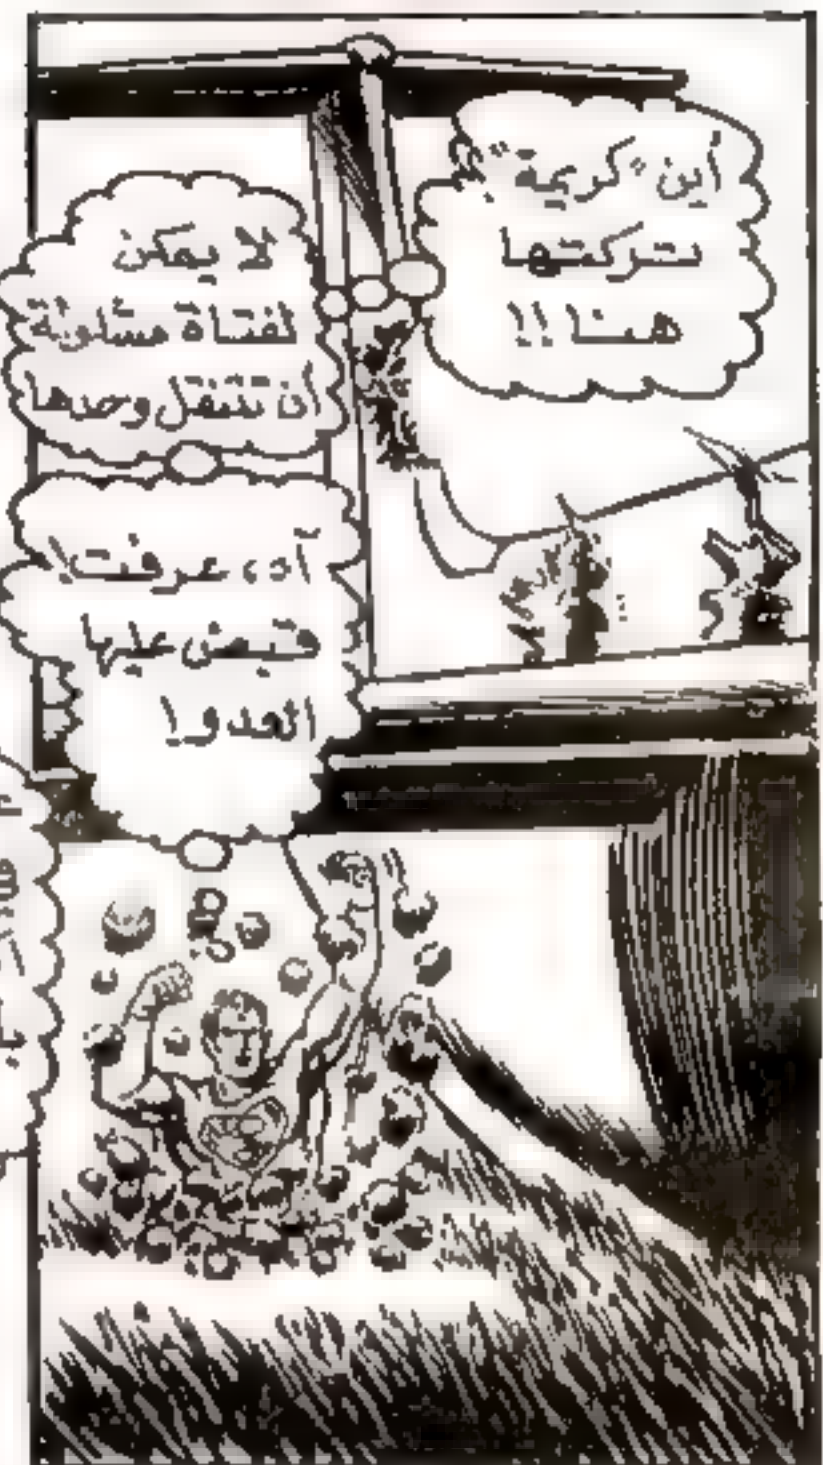 أين "كريمة"؟
تركتها
هنا !!
لا يمكن
لفتاة مشلولة
أن تنتقل وحدها
آه، عرفت!
قبض عليها
العدو!